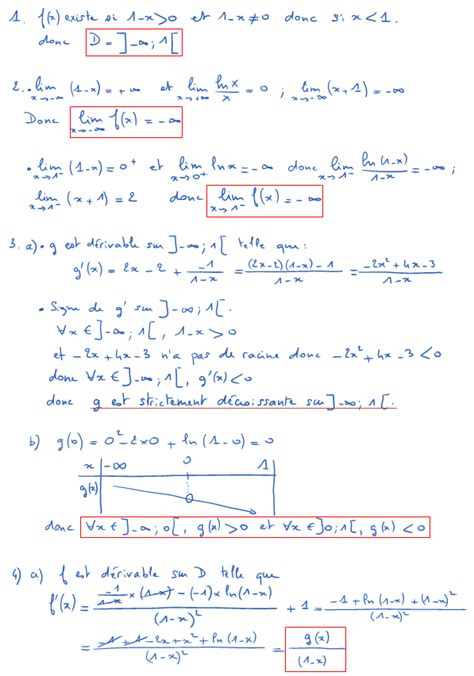 1. f(x) existe si 1-x>0 et 1-x≠0 donc si x<1.
donc D = ]-∞; 1[
2. • lim x→-∞ (1-x) = +∞ et lim x→+∞ ln x / x = 0 ; lim x→-∞ (x+1) = -∞
Donc lim x→-∞ f(x) = -∞
• lim x→1⁻ (1-x) = 0⁺ et lim x→0⁺ ln x = -∞ donc lim x→1⁻ ln(1-x)/(1-x) = -∞ ;
lim x→1⁻ (x+1) = 2 donc lim x→1⁻ f(x) = -∞
3. a) • g est dérivable sur ]-∞; 1[ telle que :
g'(x) = 2x - 2 + -1/(1-x) = ((2x-2)(1-x) - 1)/(1-x) = (-2x² + 4x - 3)/(1-x)
• Signe de g' sur ]-∞; 1[.
∀x ∈ ]-∞; 1[, 1-x > 0
et -2x + 4x - 3 n'a pas de racine donc -2x² + 4x - 3 < 0
donc ∀x ∈ ]-∞; 1[, g'(x) < 0
donc g est strictement décroissante sur ]-∞; 1[.
b) g(0) = 0² - 2×0 + ln(1-0) = 0
x -∞ 0 1
g(x) 0
donc ∀x ∈ ]-∞; 0[, g(x) > 0 et ∀x ∈ ]0; 1[, g(x) < 0
4) a) f est dérivable sur D telle que
f'(x) = (-1/(1-x) × (1-x) - (-1) × ln(1-x))/(1-x)² + 1 = (-1 + ln(1-x) + (1-x)²)/(1-x)²
= (-1 + 1 - 2x + x² + ln(1-x))/(1-x)² = g(x)/(1-x)